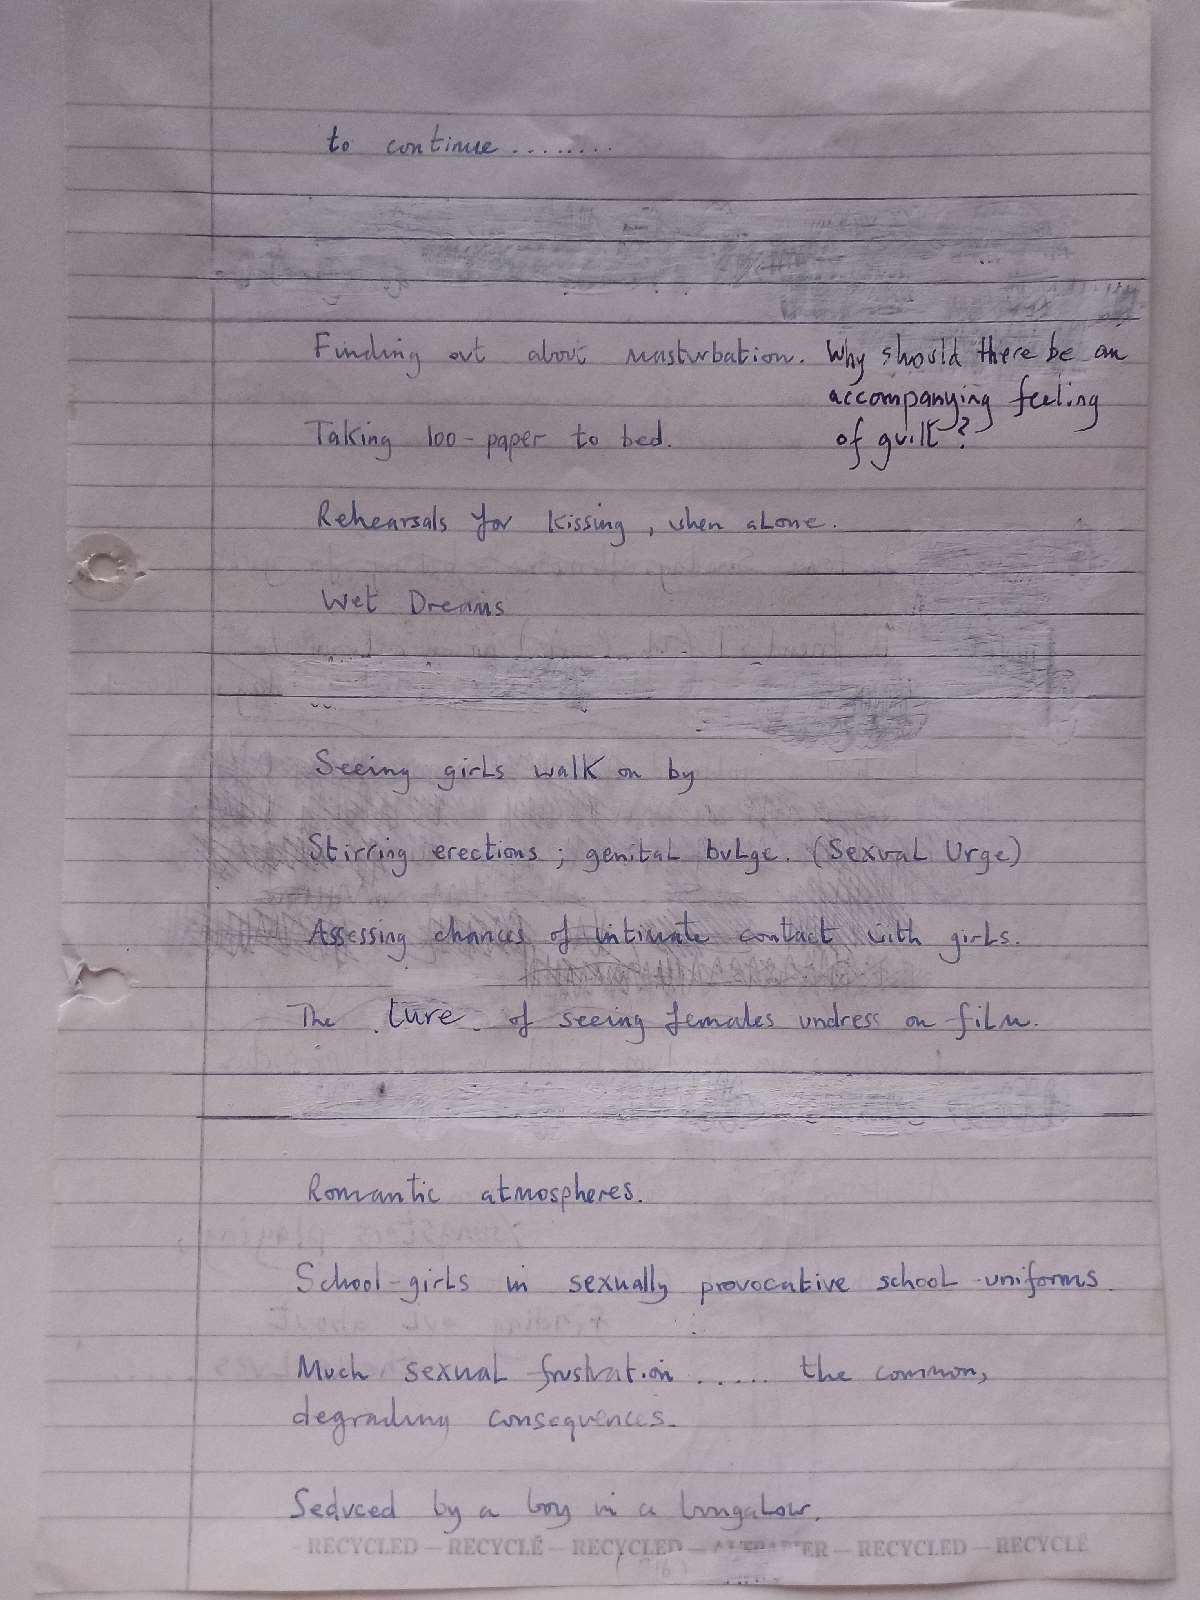 to continue ........
Finding out about masturbation. Why should there be an
accompanying feeling
Taking loo-paper to bed. of guilt?
Rehearsals for kissing, when alone.
Wet Dreams
Seeing girls walk on by
Stirring erections; genital bulge. (Sexual Urge)
Assessing chances of intimate contact with girls.
The lure of seeing females undress on film.
Romantic atmospheres.
School-girls in sexually provocative school-uniforms.
Much sexual frustration ..... the common,
degrading consequences.
Seduced by a boy in a bungalow.
RECYCLED — RECYCLÉ — RECYCLED — RECYCLED — RECYCLÉ